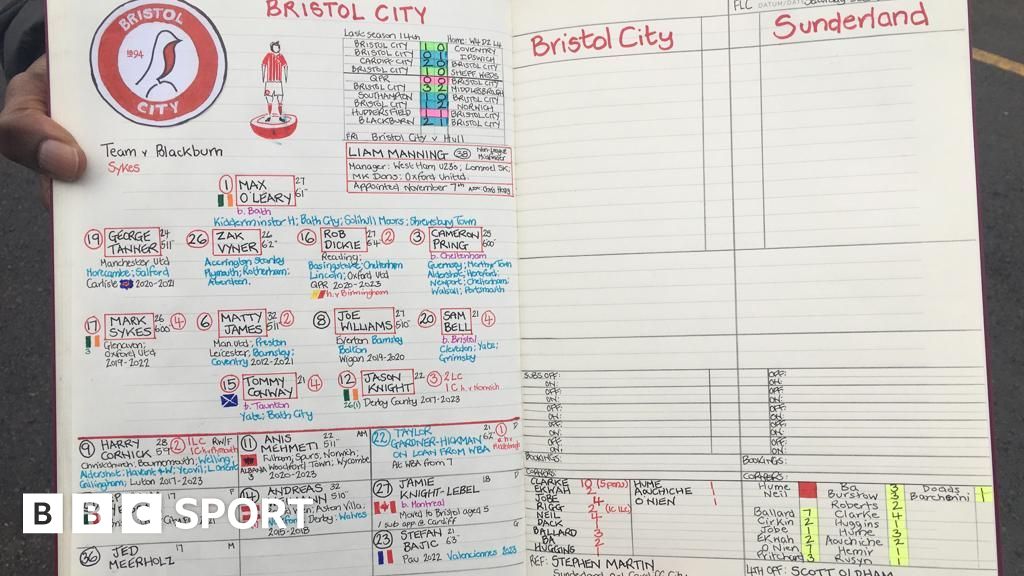 BRISTOL CITY
BRISTOL
1894
CITY
Last season 14th
Home: W4 D2 L4
BRISTOL CITY 1 0 COVENTRY
BRISTOL CITY 0 1 IPSWICH
CARDIFF CITY 2 0 BRISTOL CITY
BRISTOL CITY 1 0 SHEFF WEDS
QPR 0 0 BRISTOL CITY
BRISTOL CITY 3 2 MIDDLESBROUGH
SOUTHAMPTON 1 0 BRISTOL CITY
BRISTOL CITY 1 2 NORWICH
HUDDERSFIELD 1 1 BRISTOL CITY
BLACKBURN 2 1 BRISTOL CITY
FRI Bristol City v Hull
LIAM MANNING 38
Manager: West Ham U23s; Lommel SK;
MK Dons; Oxford United
Appointed November 7th
Team v Blackburn
Sykes
1 MAX O'LEARY 27 6'1"
b. Bath
Kidderminster H; Bath City; Solihull Moors; Shrewsbury Town
19 GEORGE TANNER 24 5'11"
Manchester Utd
Morecambe; Salford
Carlisle 2020-2021
26 ZAK VYNER 26 6'2"
Accrington Stanley
Plymouth; Rotherham;
Aberdeen
16 ROB DICKIE 27 6'4" 2
Reading;
Basingstoke; Cheltenham
Lincoln; Oxford Utd
QPR 2020-2023
h. v Birmingham
3 CAMERON PRING 25 6'00"
b. Cheltenham
Guernsey; Merthyr Town
Aldershot; Hereford;
Newport; Cheltenham;
Walsall; Portsmouth
17 MARK SYKES 26 6'00" 4
3
Glenavon;
Oxford Utd
2019-2022
6 MATTY JAMES 32 5'11" 2
Man Utd; Preston
Leicester; Barnsley;
Coventry 2012-2021
8 JOE WILLIAMS 27 5'10"
Everton Barnsley
Bolton
Wigan 2019-2020
20 SAM BELL 21 4
b. Bristol
Clevedon; Yate;
Grimsby
15 TOMMY CONWAY 21 4
b. Taunton
Yate; Bath City
12 JASON KNIGHT 22 3 2LC
1C h. v Norwich
26(1) Derby County 2017-2023
9 HARRY CORNICK 28 5'9" 2 1LC RW/F
1C h v Plymouth
Christchurch; Bournemouth; Welling;
Aldershot; Havant & W; Yeovil; L Orient
Gillingham; Luton 2017-2023
11 ANIS MEHMETI 22 5'11" AM
ALBANIA
Fulham; Spurs; Norwich;
Woodford Town; Wycombe
2020-2023
22 TAYLOR GARDNER-HICKMAN 21 6'2" 1 D
ON LOAN FROM WBA
At WBA from 7
14 ANDREAS 32 5'10"
Aston Villa;
Derby; Wolves
2015-2018
27 JAMIE KNIGHT-LEBEL 18 D
b. Montreal
Moved to Bristol aged 5
1 sub app @ Cardiff
23 STEFAN BAJIC 21 6'3" G
Pau 2022 Valenciennes 2023
36 JED MEERHOLZ 17 M
BBC SPORT
FLC DATUM/DATE
Bristol City
Sunderland
SUBS OFF:
ON:
OFF:
ON:
OFF:
ON:
OFF:
ON:
OFF:
ON:
OFF:
ON:
OFF:
ON:
OFF:
ON:
OFF:
ON:
OFF:
ON:
BOOKINGS:
BOOKINGS:
CORNERS:
CORNERS:
CLARKE 10 (5 pens)
EKWAH 2
JOBE 4
RIGG 2 (1c 1LC)
NEIL 4
DACK 1
BALLARD 3
BA 2
HUGGINS 1
HUME 1
AOUCHICHE
O'NIEN 1
Hume
Neil
Ballard 7
Cirkin 2
Jobe 3
Ekwah 2
O'Nien 7
Pritchard 3
Ba 3
Burstow 3
Roberts 2
Clarke 4
Huggins 1
Hume 3
Aouchiche 2
Hemir 1
Rusyn 1
Dack
Barchenni 1
REF: STEPHEN MARTIN
4TH OFF: SCOTT OLDHAM